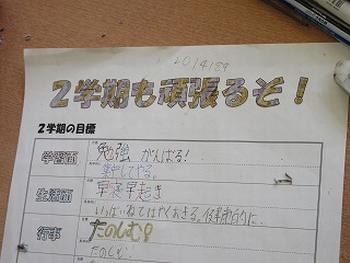 2014189
2学期も頑張るぞ!
2学期の目標
学習面
勉強 がんばる!
集中してやる。
生活面
早寝早起き
いっぱいねてはやくおきる。
行事
たのしむ!
たのしむ。